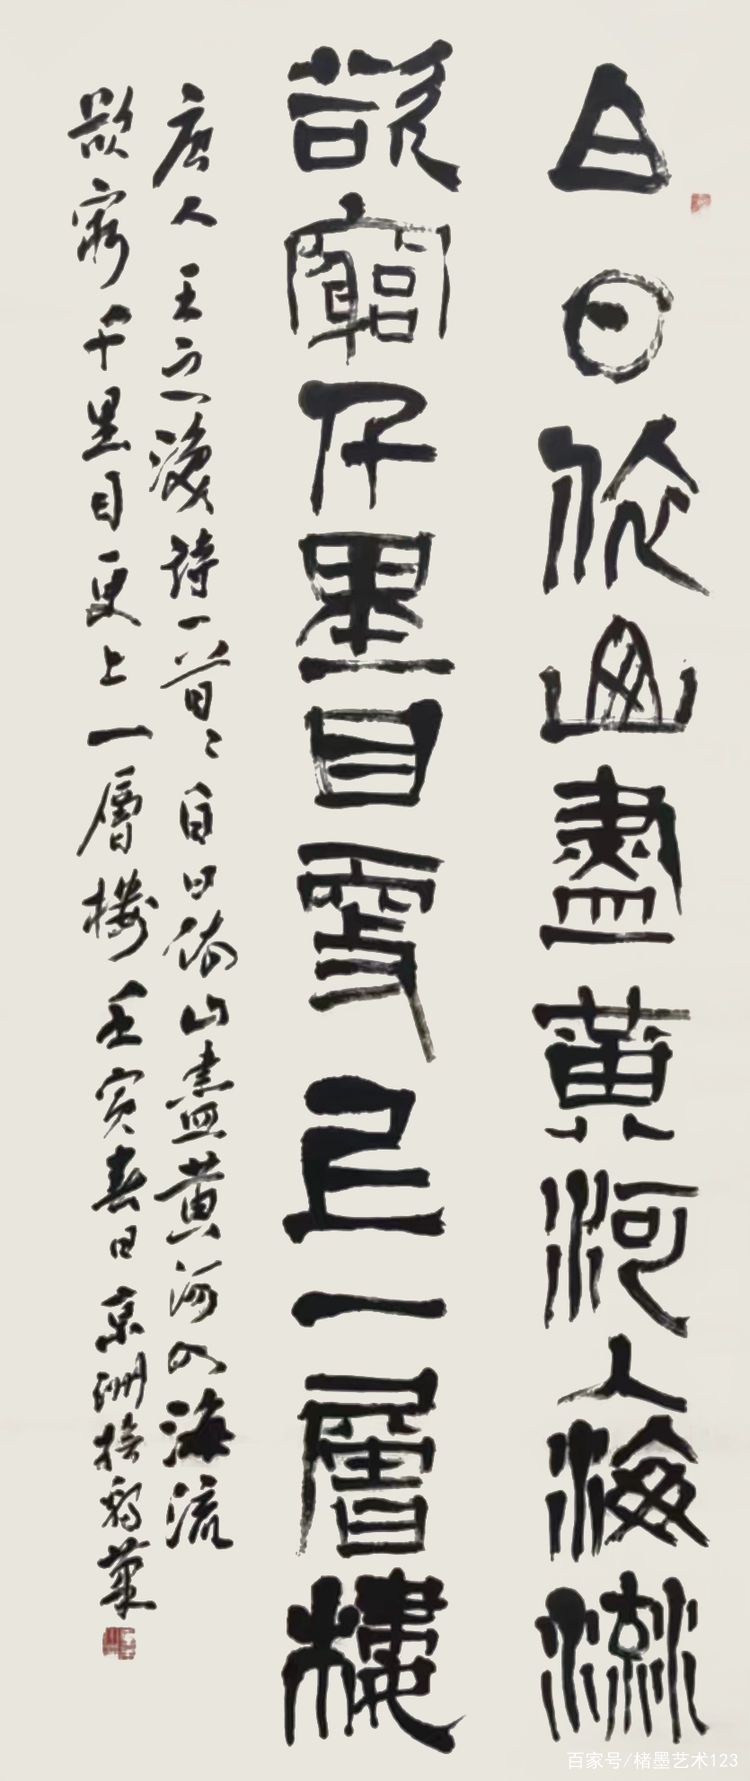 白日依山盡黄河入海流
欲窮千里目更上一層樓
唐人王之渙詩一首白日依山盡黄河入海流
欲窮千里目更上一層樓壬寅春日京洲
百家号/楮墨艺术123